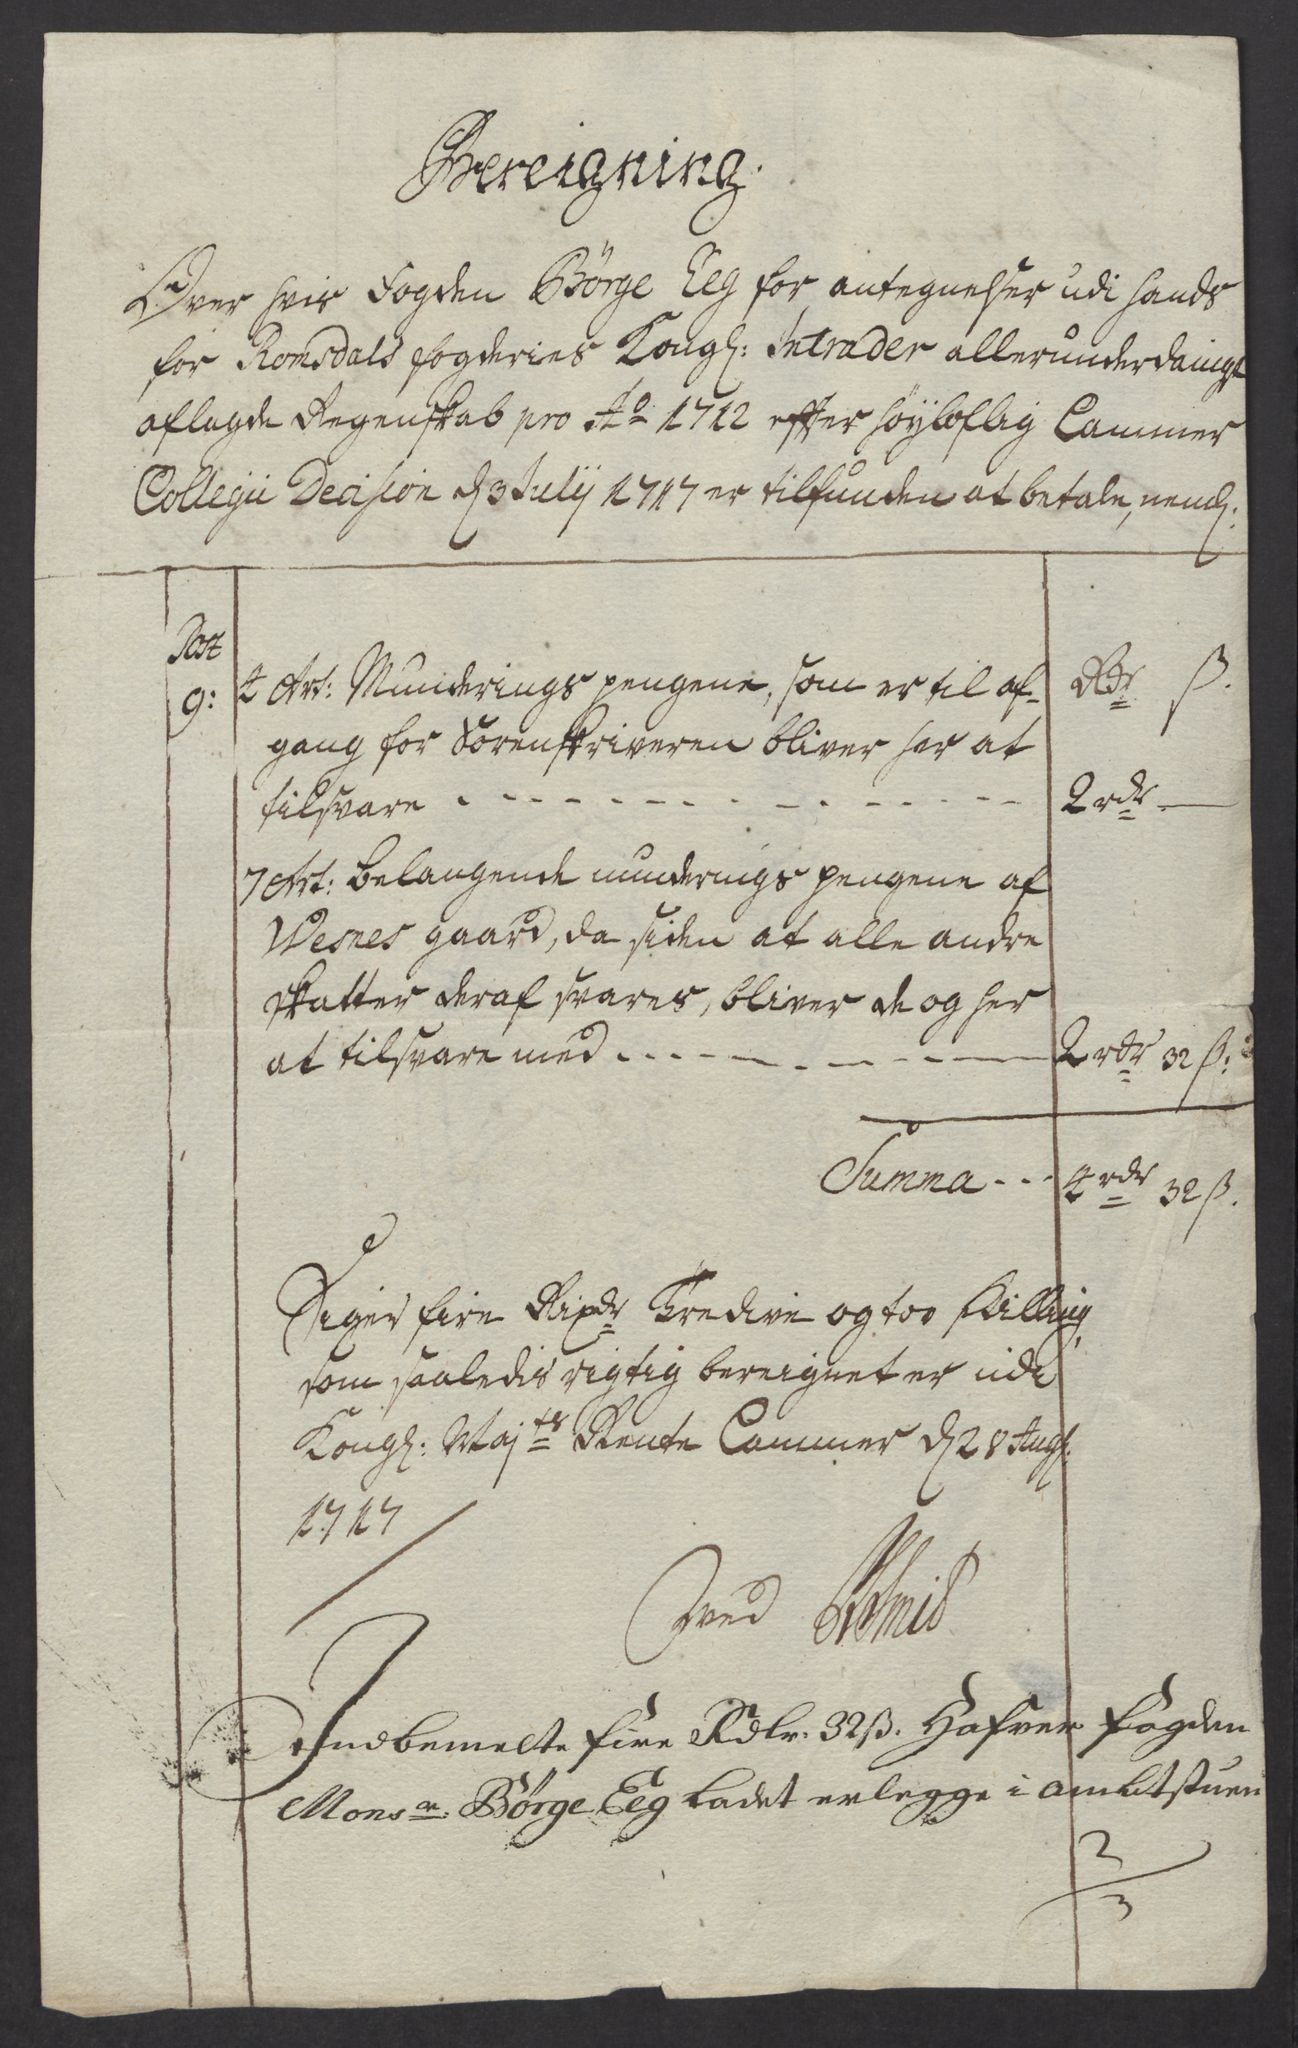 Bereigning.
Over hvis Fogden Børge Eeg for antegnelser udi hands
for Romsdals fogderies Kongl: Intrader allerunderdanigst
aflagde Regenskab pro Ao 1712 effter høyloflig Cammer
Collegii Decision d 3 Julij 1717 er tilfunden at betale, neml:
Post
9: 4 Art: Munderings pengene, som er til af- Rdr ß.
gang for Sorenskriveren bliver her at
tilsvare - - - - - - - - - - - - - 2 rdr —
7 Art: belangende munderings pengene af
Wesnes gaard, da siden at alle andre
skatter deraf svares, bliver de og her
at tilsvare med - - - - - - - - 2 rdr 32 ß:
Summa - - - 4 rdr 32 ß.
Siger fire Rixdr Tredive og too skilling,
som saaledis rigtig bereignet er udi
Kongl: Majts Rente Cammer d 28 Aug:
1717
Wed
Indbemelte fire Rdlr: 32 ß. Hafver fogden
Monsr. Børge Eeg ladet erlegge i ambtstuen
2/3